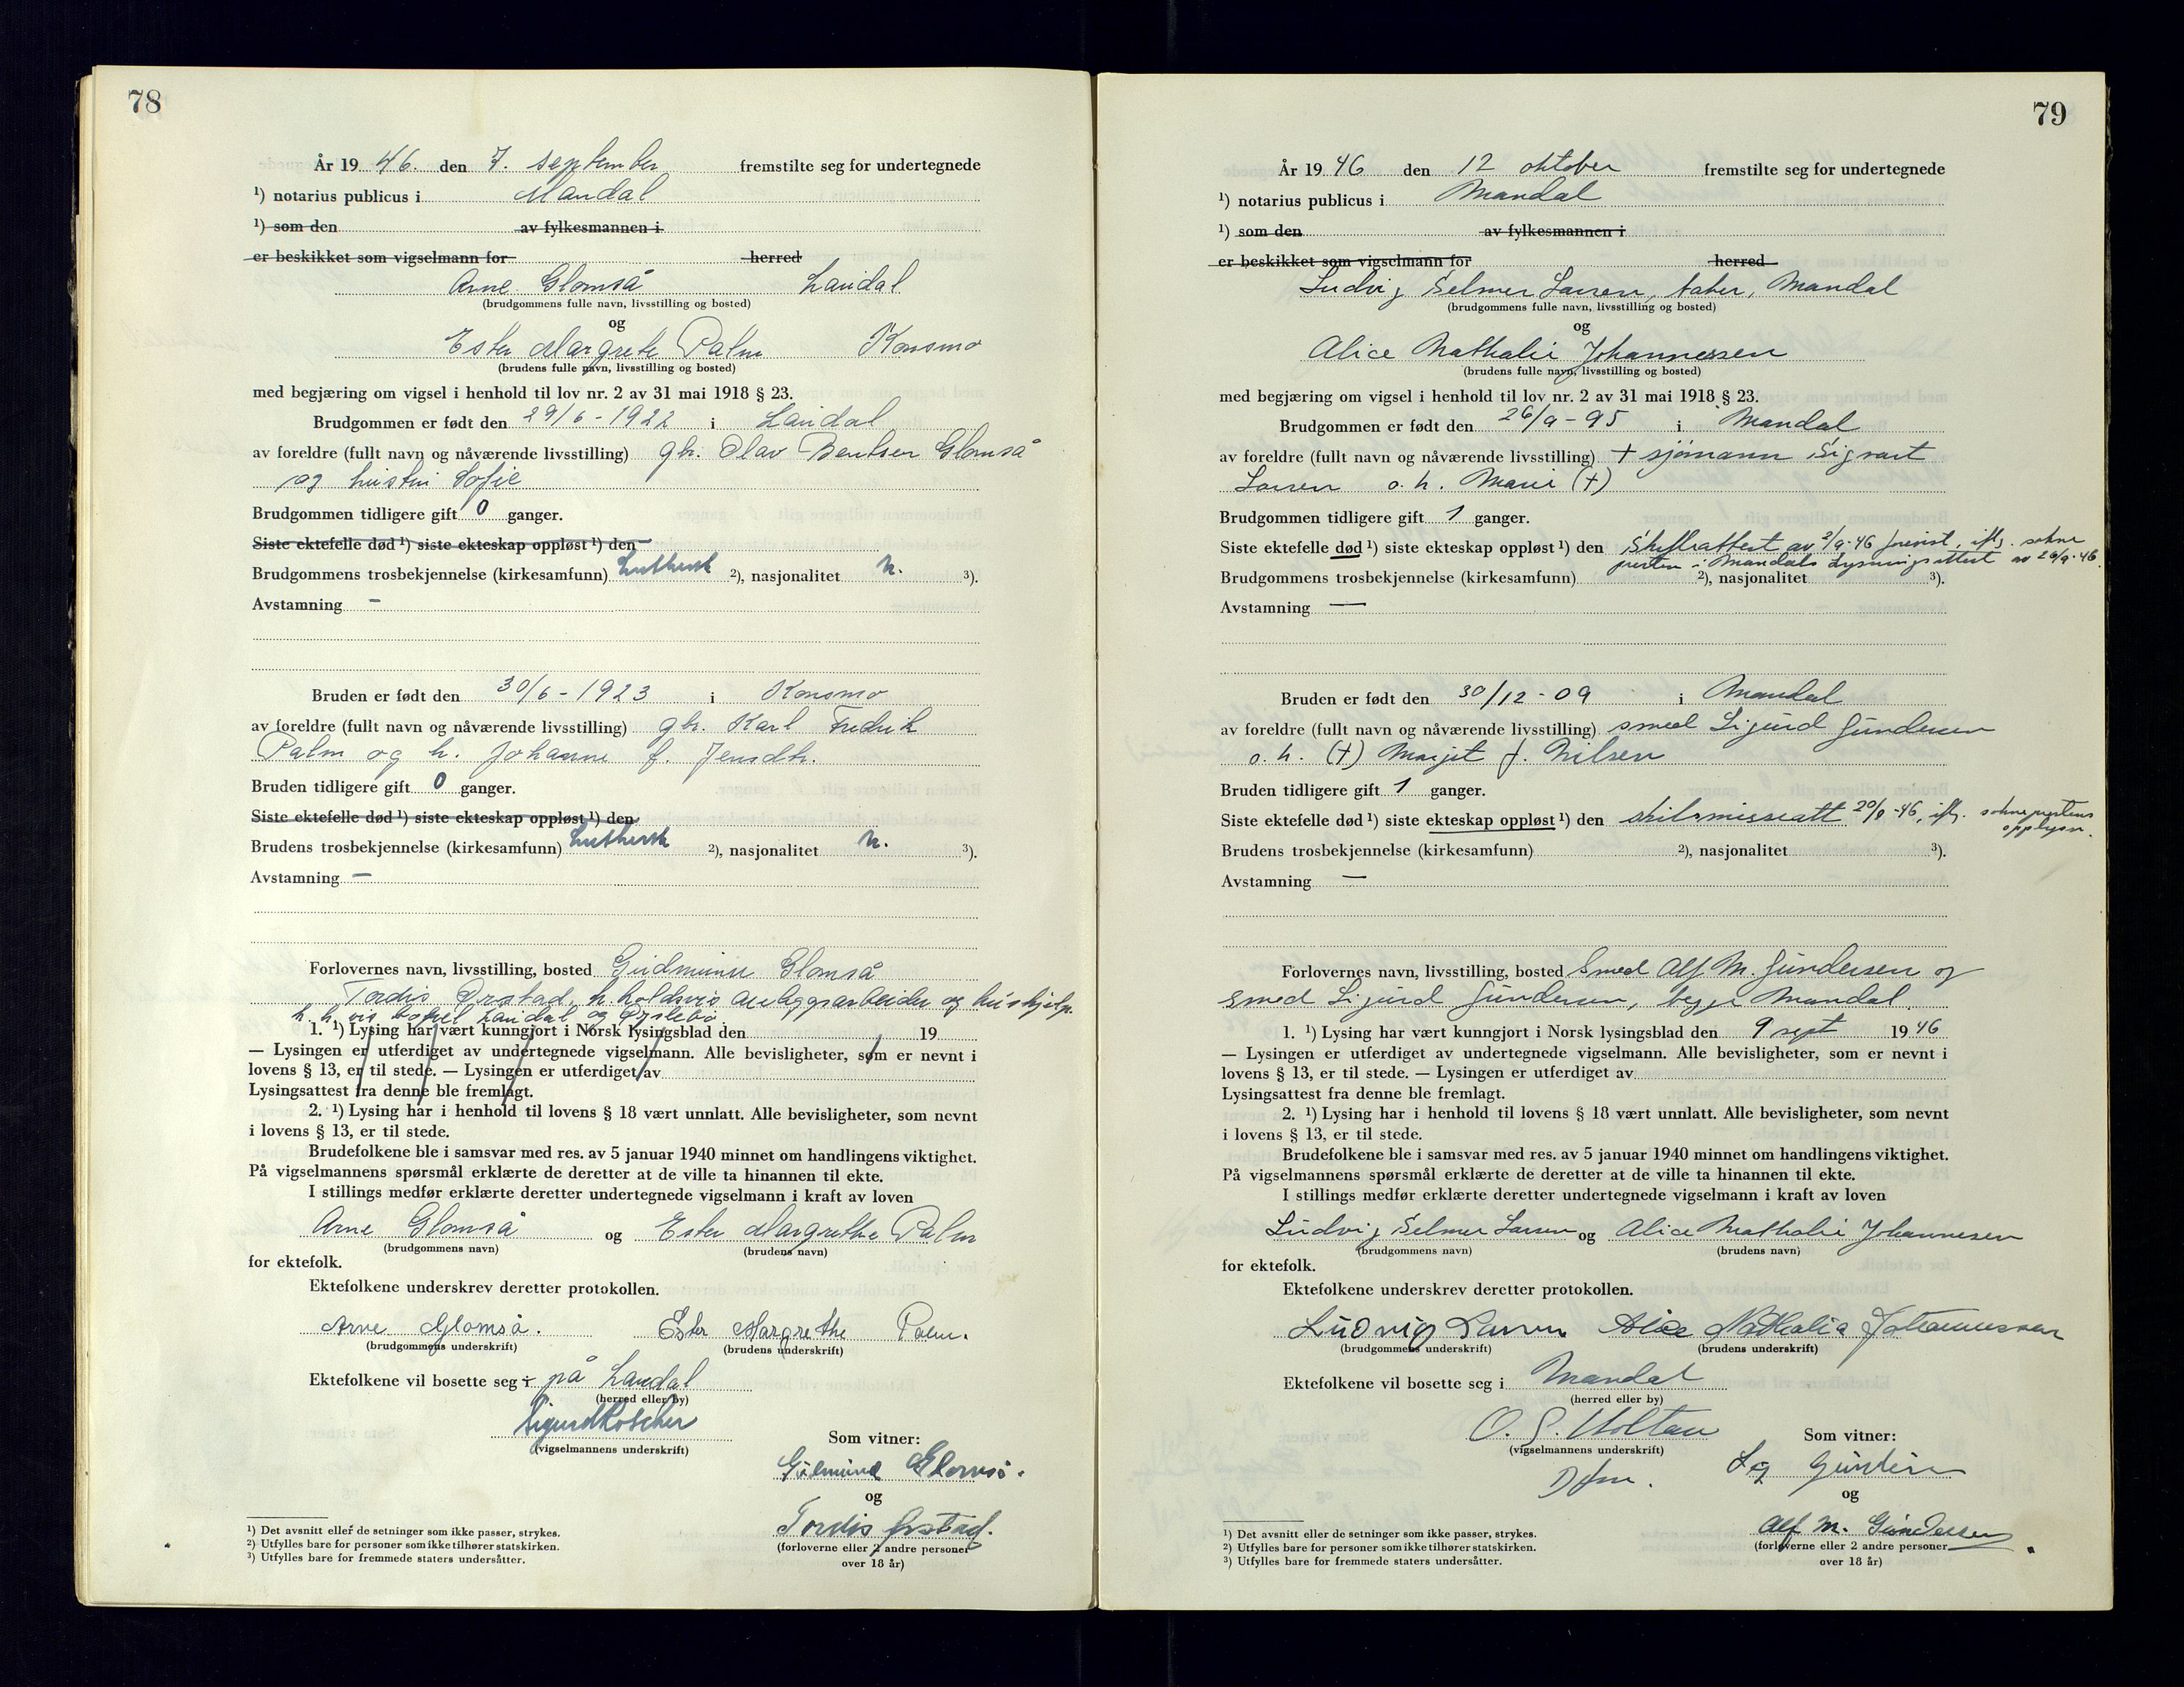 78
År 19 46. den 7. september fremstilte seg for undertegnede
¹) notarius publicus i Mandal
¹) som den av fylkesmannen i
er beskikket som vigselmann for herred
Arne Glomså Laudal
(brudgommens fulle navn, livsstilling og bosted)
og
Ester Margrete Palm Konsmo
(brudens fulle navn, livsstilling og bosted)
med begjæring om vigsel i henhold til lov nr. 2 av 31 mai 1918 § 23.
Brudgommen er født den 29/6-1922 i Laudal
av foreldre (fullt navn og nåværende livsstilling) gbr. Olav Bentsen Glomså
og hustru Sofie
Brudgommen tidligere gift 0 ganger.
Siste ektefelle død ¹) siste ekteskap oppløst ¹) den
Brudgommens trosbekjennelse (kirkesamfunn) Luthersk ²), nasjonalitet n. ³).
Avstamning –
Bruden er født den 30/6-1923 i Konsmo
av foreldre (fullt navn og nåværende livsstilling) gbr. Karl Fredrik
Palm og h. Johanne f. Jensdtr.
Bruden tidligere gift 0 ganger.
Siste ektefelle død ¹) siste ekteskap oppløst ¹) den
Brudens trosbekjennelse (kirkesamfunn) Luthersk ²), nasjonalitet n. ³).
Avstamning –
Forlovernes navn, livsstilling, bosted Gudmunn Glomså
Tordis Ørstad, h. holdsvis anleggsarbeider og hushjelp.
h. h. vis bopel Laudal og Øyslebø
1. ¹) Lysing har vært kunngjort i Norsk lysingsblad den 19
— Lysingen er utferdiget av undertegnede vigselmann. Alle bevisligheter, som er nevnt i
lovens § 13, er til stede. — Lysingen er utferdiget av
Lysingsattest fra denne ble fremlagt.
2. ¹) Lysing har i henhold til lovens § 18 vært unnlatt. Alle bevisligheter, som nevnt
i lovens § 13, er til stede.
Brudefolkene ble i samsvar med res. av 5 januar 1940 minnet om handlingens viktighet.
På vigselmannens spørsmål erklærte de deretter at de ville ta hinannen til ekte.
I stillings medfør erklærte deretter undertegnede vigselmann i kraft av loven
Arne Glomså og Ester Margrethe Palm
(brudgommens navn) (brudens navn)
for ektefolk.
Ektefolkene underskrev deretter protokollen.
Arne Glomså. Ester Margrethe Palm.
(brudgommens underskrift) (brudens underskrift)
Ektefolkene vil bosette seg i på Laudal
(herred eller by)
Sigurd Roscher
(vigselmannens underskrift)
Som vitner:
Gudmund Glomså.
og
Tordis Ørstad.
(forloverne eller 2 andre personer
over 18 år)
¹) Det avsnitt eller de setninger som ikke passer, strykes.
²) Utfylles bare for personer som ikke tilhører statskirken.
³) Utfylles bare for fremmede staters undersåtter.
79
År 19 46 den 12 oktober fremstilte seg for undertegnede
¹) notarius publicus i Mandal
¹) som den av fylkesmannen i
er beskikket som vigselmann for herred
Ludvig Selmer Larsen, tater, Mandal
(brudgommens fulle navn, livsstilling og bosted)
og
Alice Nathalie Johannessen
(brudens fulle navn, livsstilling og bosted)
med begjæring om vigsel i henhold til lov nr. 2 av 31 mai 1918 § 23.
Brudgommen er født den 26/9-95 i Mandal
av foreldre (fullt navn og nåværende livsstilling) + sjømann Sigvart
Larsen o. h. Marie (+)
Brudgommen tidligere gift 1 ganger.
Siste ektefelle død ¹) siste ekteskap oppløst ¹) den Skifteattest av 2/9-46 forevist, iflg. sokne
presten i Mandals lysningsattest av 26/9-46.
Brudgommens trosbekjennelse (kirkesamfunn) ²), nasjonalitet ³).
Avstamning —
Bruden er født den 30/12-09 i Mandal
av foreldre (fullt navn og nåværende livsstilling) smed Sigurd Gundersen
o. h. (+) Margit f. Nilsen
Bruden tidligere gift 1 ganger.
Siste ektefelle død ¹) siste ekteskap oppløst ¹) den skilsmisseatt 20/9-46, iflg. sokneprestens
opplysn.
Brudens trosbekjennelse (kirkesamfunn) ²), nasjonalitet ³).
Avstamning —
Forlovernes navn, livsstilling, bosted Smed Alf M. Gundersen og
smed Sigurd Gundersen, begge Mandal.
1. ¹) Lysing har vært kunngjort i Norsk lysingsblad den 9 sept 19 46
— Lysingen er utferdiget av undertegnede vigselmann. Alle bevisligheter, som er nevnt i
lovens § 13, er til stede. — Lysingen er utferdiget av
Lysingsattest fra denne ble fremlagt.
2. ¹) Lysing har i henhold til lovens § 18 vært unnlatt. Alle bevisligheter, som nevnt
i lovens § 13, er til stede.
Brudefolkene ble i samsvar med res. av 5 januar 1940 minnet om handlingens viktighet.
På vigselmannens spørsmål erklærte de deretter at de ville ta hinannen til ekte.
I stillings medfør erklærte deretter undertegnede vigselmann i kraft av loven
Ludvig Selmer Larsen og Alice Nathalie Johannesen
(brudgommens navn) (brudens navn)
for ektefolk.
Ektefolkene underskrev deretter protokollen.
Ludvig Larsen Alice Nathalia Johannessen
(brudgommens underskrift) (brudens underskrift)
Ektefolkene vil bosette seg i Mandal
(herred eller by)
O. S. Holtan
(vigselmannens underskrift)
Dfm.
Som vitner:
Sig Gundersen
og
Alf M. Gundersen
(forloverne eller 2 andre personer
over 18 år)
¹) Det avsnitt eller de setninger som ikke passer, strykes.
²) Utfylles bare for personer som ikke tilhører statskirken.
³) Utfylles bare for fremmede staters undersåtter.